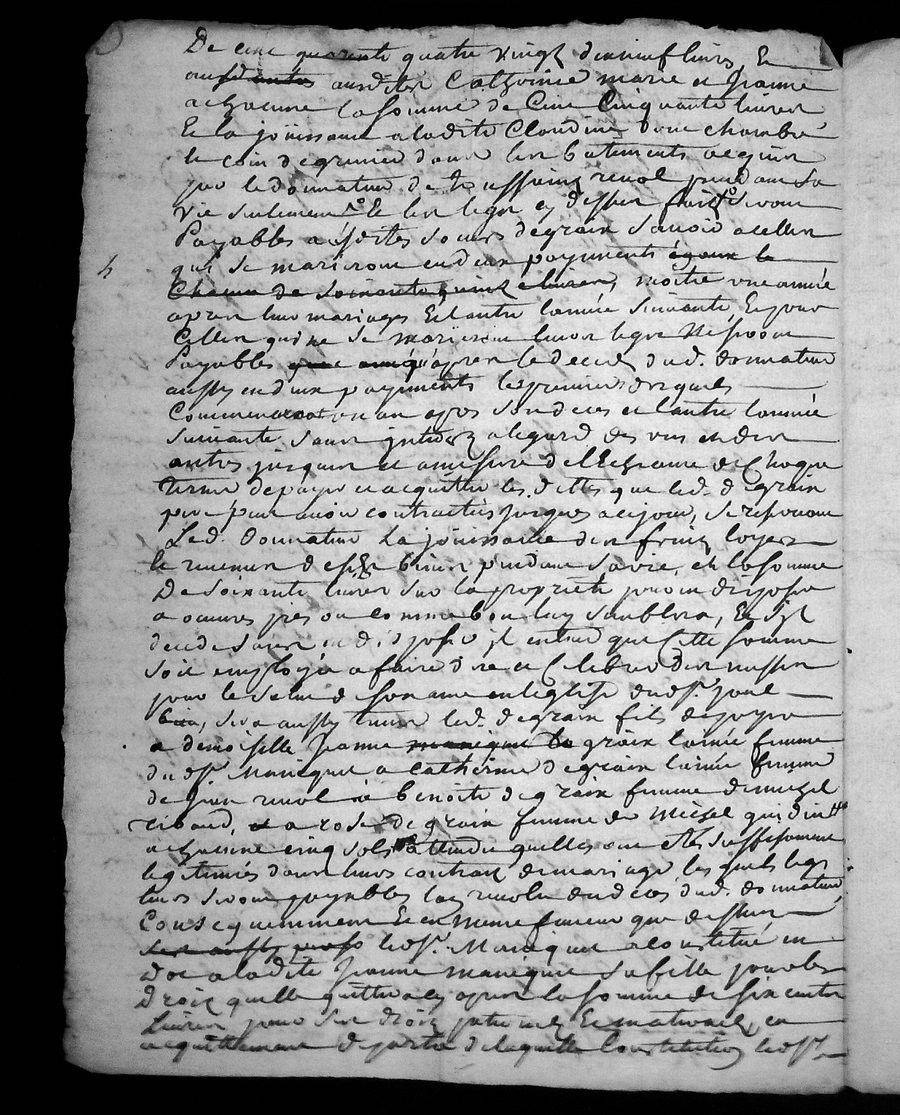 De cent quarante quatre vingt dixneuf livres, Et
ausdites Catherine marie et Jeanne
a chacune la somme de Cent Cinquante livres
Et la joüissance a ladite Claudine d'une chambre
le coin de grenier dans les batiments acquis
par le donnateur de toussaint revol pendant sa
Vie seulement Et les legs cy dessus seront
Payables a sesdites soeurs degraix Sçavoir a celles
qui se marieront en deux payements égaux le
Chacun de Soixante quinze livres, moitie une année
apres leur mariages Et l'autre l'année suivante Et pour
Celles qui ne se marieront leurs legs ne seront
Payables qu'apres le deced dud. donnateur
aussy en deux payements le premier desquels
Commencera un an apres son deces et l'autre l'année
Suivante sans interez a l'egard des uns et des
autres jusques et a mesure de l'Echeance de Chaque
terme de payer et acquitter les dettes que led. degraix
pere peut avoir contractées jusques a ce jour, se reservant
Led. donnateur La joüissance des fruits loyers
Et revenus desdts biens pendant sa vie, et la somme
De Soixante livres sur la propriété pour en disposer
a oeuvres pies ou comme bon luy semblera, Et s'il
decede sans en disposer il entend que Cette somme
soit employée a faire dire et Celebrer des messes
pour le salut de son ame en l'eglise dud. St. Juil
bien, sera aussy tenu led. degraix fils de payer
a demoiselle Jeanne degraix l'ainée femme
du Sr. Manique a Catherine degraix l'ainée femme
de jean revol a benoite degraix femme de michel
ribaud, et a rose degraix femme de Michel
a chacune cinq sols attendu quelles ont etés suffisamment
legitimées dans leurs contrats de mariage lesquels legs
leurs seront payables lan revolu du deces dud. donnateur
Consequemment Et en meme faveur que dessus
Sera aussy ledSr. Manique a constitué en
Dot a ladite Jeanne manique sa fille pour les
Droits quelle quittera cy apres la somme de six cents
Livres pour ses droits paternels Et maternels, en
acquittement de partie de laquelle Constitution ledSr.